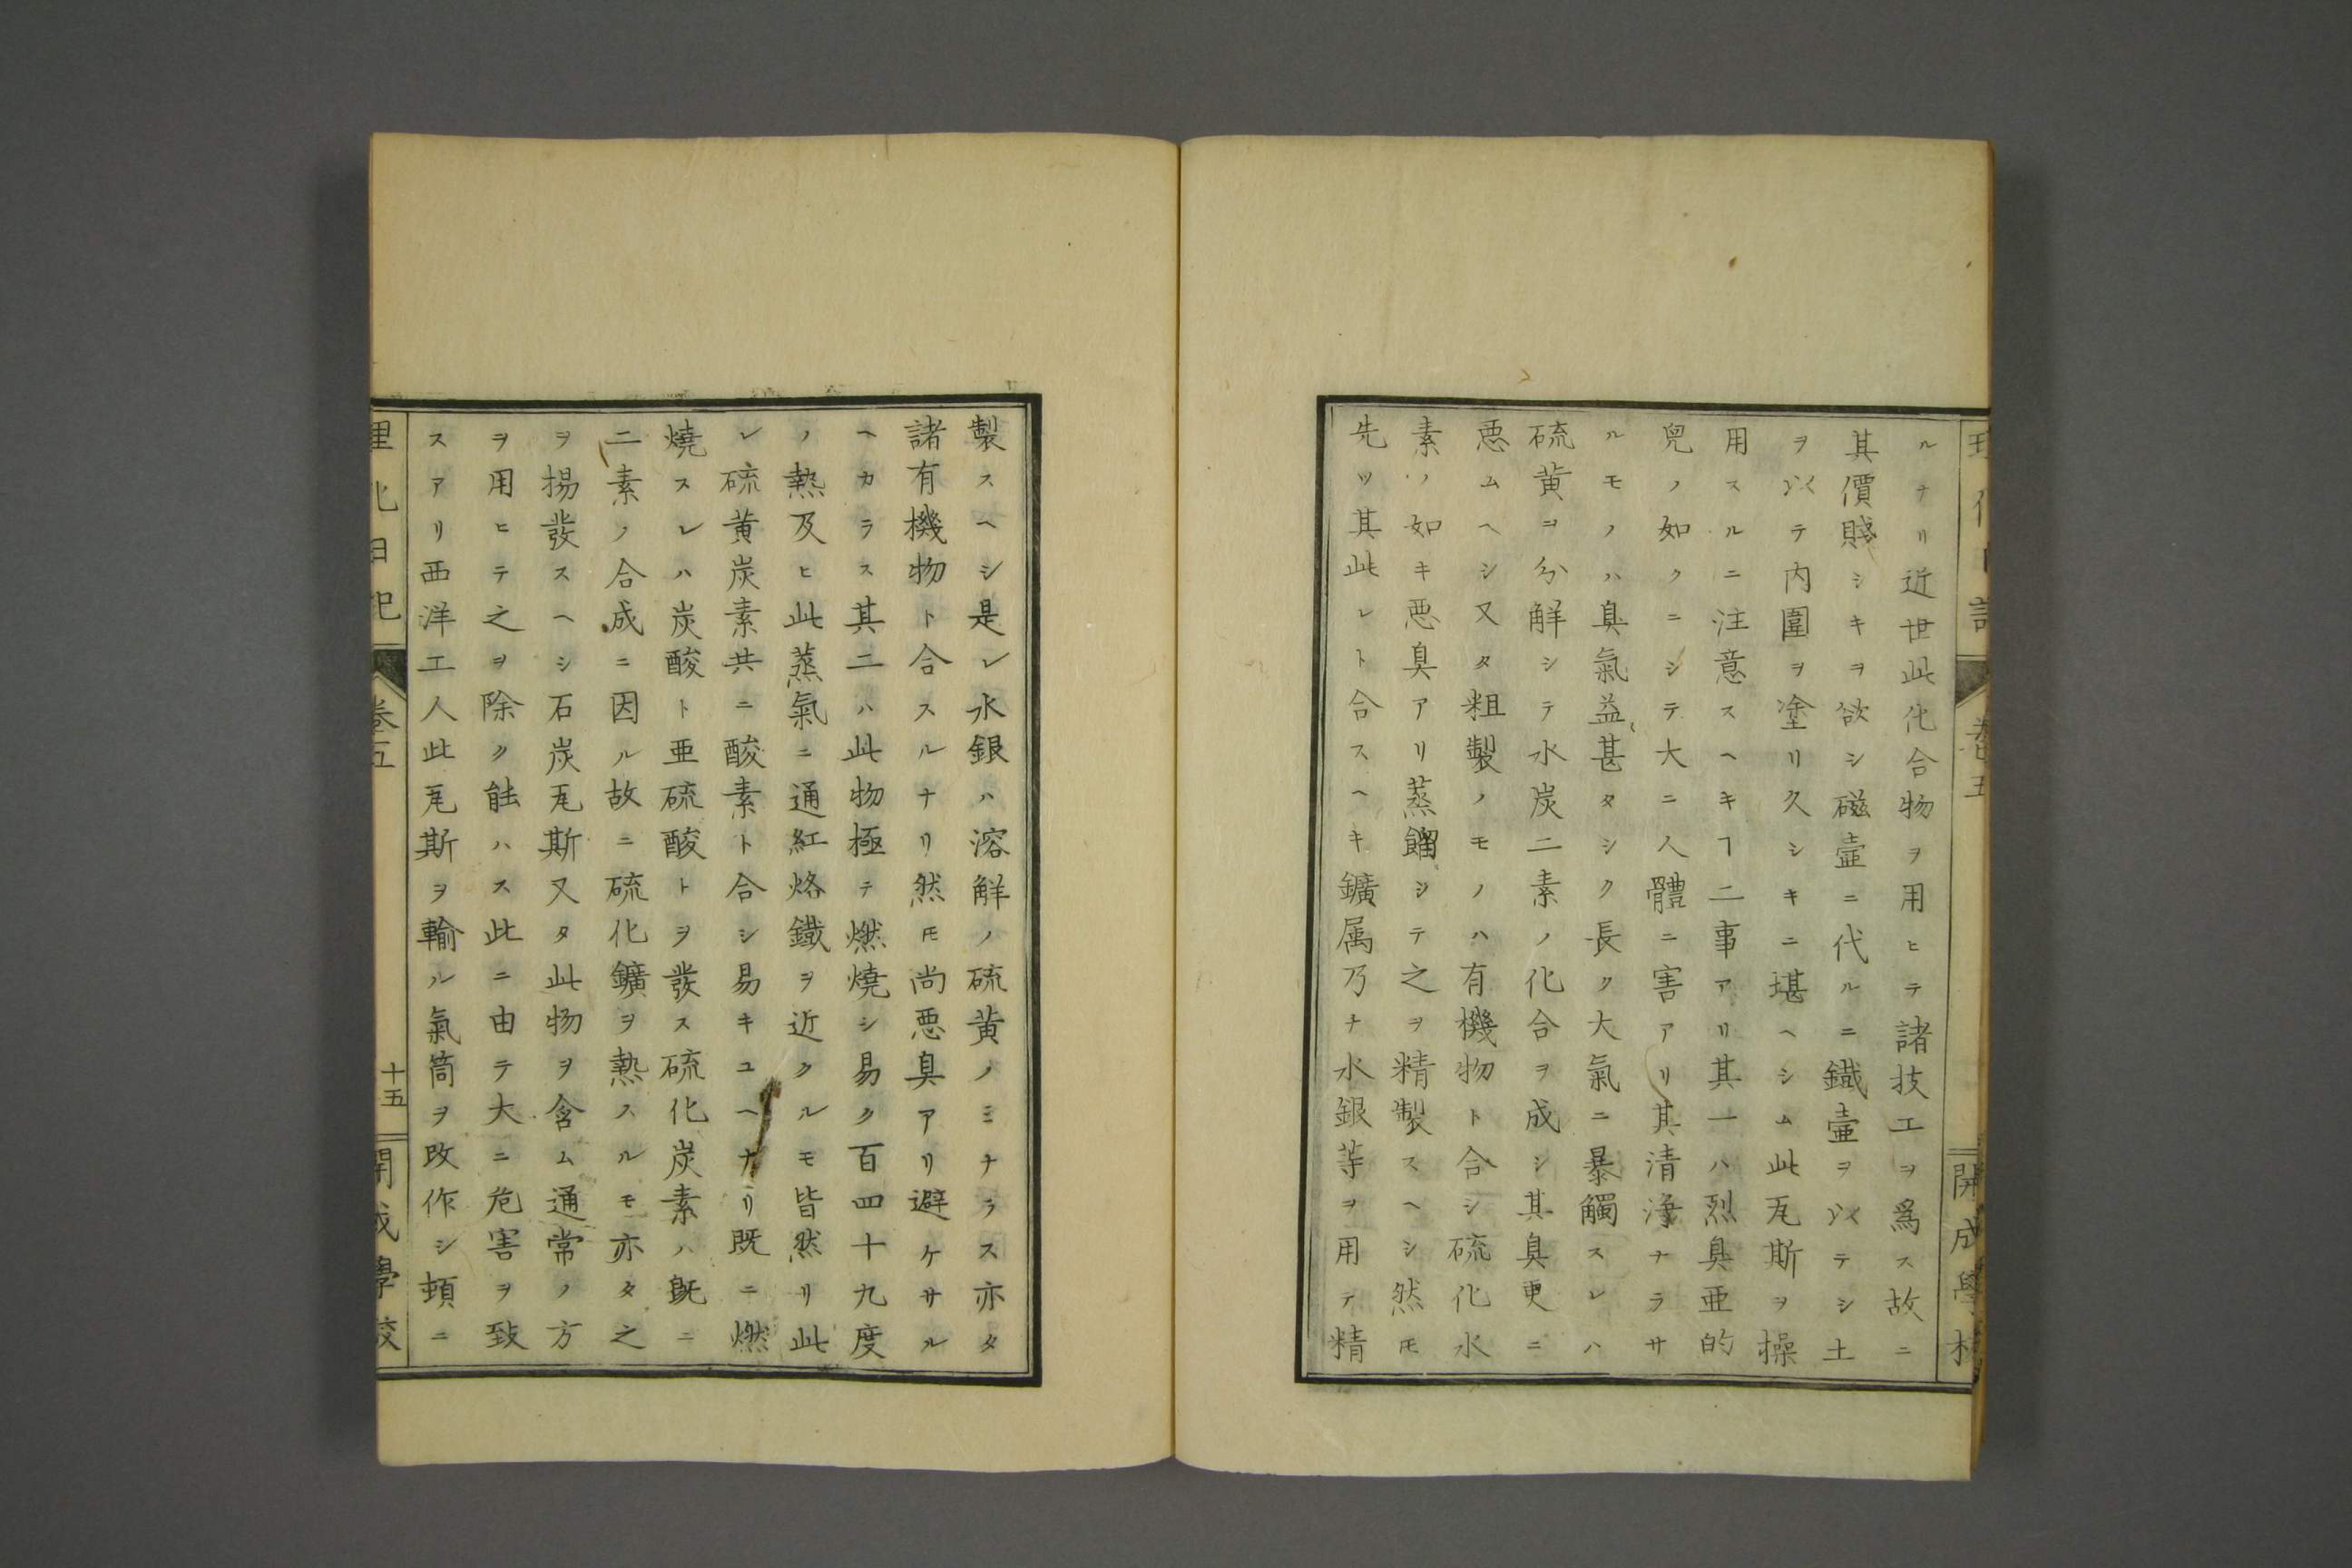 ルナリ近世此化合物ヲ用ヒテ諸技工ヲ爲ス故ニ
其價賤シキヲ欲シ磁壷ニ代ルニ鐵壷ヲ以テシ土
ヲ以テ内圍ヲ塗リ久シキニ堪ヘシム此瓦斯ヲ操
用スルニ注意スヘキヿ二事アリ其一ハ烈臭亜的
兒ノ如クニシテ大ニ人體ニ害アリ其清淨ナラサ
ルモノハ臭氣益甚タシク長ク大氣ニ暴觸スレハ
硫黄ヲ分解シテ水炭二素ノ化合ヲ成シ其臭更ニ
悪ムヘシ又タ粗製ノモノハ有機物ト合シ硫化水
素ノ如キ悪臭アリ蒸餾シテ之ヲ精製スヘシ然𪜈
先ツ其此レト合スヘキ鑛属乃ナ水銀等ヲ用テ精
製スヘシ是レ水銀ハ溶解ノ硫黄ノミナラス亦タ
諸有機物ト合スルナリ然𪜈尚悪臭アリ避ケサル
ヘカラス其二ハ此物極テ燃燒シ易ク百四十九度
ノ熱及ヒ此蒸氣ニ通紅烙鐵ヲ近クルモ皆然リ此
レ硫黄炭素共ニ酸素ト合シ易キユヘナリ既ニ燃
燒スレハ炭酸ト亜硫酸トヲ發ス硫化炭素ハ既ニ
二素ノ合成ニ因ル故ニ硫化鑛ヲ熱スルモ亦タ之
ヲ揚發スヘシ石炭瓦斯又タ此物ヲ含ム通常ノ方
ヲ用ヒテ之ヲ除ク能ハス此ニ由テ大ニ危害ヲ致
スアリ西洋工人此瓦斯ヲ輸ル氣筒ヲ改作シ頓ニ
理化日記
巻五
十五
開成學校